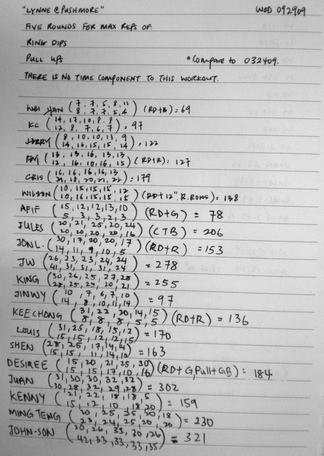 "LYNNE @ PUSHMORE" WOD 092909
FIVE ROUNDS FOR MAX REPS OF
RING DIPS
PULL UPS *Compare to 032409.
THERE IS NO TIME COMPONENT TO THIS WORKOUT.
WEI HAN (7, 7, 5, 8, 11 / 8, 7, 7, 5, 4) (RD+B): 69
KC (14, 17, 10, 8, 8 / 12, 8, 7, 6, 7), 97
JERRY (8, 10, 10, 11, 9 / 14, 16, 15, 15, 14), 122
(13, 13, 16, 13, 13 / 12, 16, 10, 16, 15) (RD+R): 127
CRIS 179
WILSON (10, 15, 15, 15, 12 / 10, 16, 15, 15, 15) (RD+12" R.RDWS): 138
AFIF (15, 12, 12, 13, 10 / 5, 3, 3, 2, 3) (RD+G) = 78
JULES (20, 21, 25, 20, 24 / 20, 20, 20, 20, 16) (CTB) = 206
JONL. (30, 17, 20, 20, 17 / 14, 11, 9, 10, 5) (RD+R) = 153
JW (26, 23, 23, 24, 24 / 41, 31, 31, 31, 24) = 278
KING (30, 26, 25, 27, 28 / 28, 25, 25, 20, 21) = 255
JINWY (10, 7, 6, 7, 10 / 14, 8, 10, 11, 14) = 97
KEE CHONG (31, 22, 20, 14, 15 / 8, 8, 8, 5, 5) (RD+R) = 136
LOUIS (31, 25, 18, 15, 12 / 15, 15, 14, 15, 10) = 170
SHEN (28, 25, 17, 14, 4 / 15, 15, 11, 14, 10) = 163
DESIREE (15, 20, 21, 25, 20 / 15, 15, 17, 10, 16) (RD+G, Pull+GB) = 184
JUAN (31, 30, 30, 32, 32 / 30, 28, 32, 29, 28) = 302
KENNY (21, 22, 18, 18, 5 / 15, 12, 10, 18, 20) = 159
MING TENG = 230
JOHN-SON (30, 26, 33, 30, 26 / 42, 33, 33, 33, 35) = 321